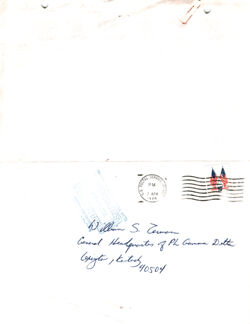 PM
William S. Zerman
General Headquarters of Phi Gamma Delta
Lexington, Kentucky
40504